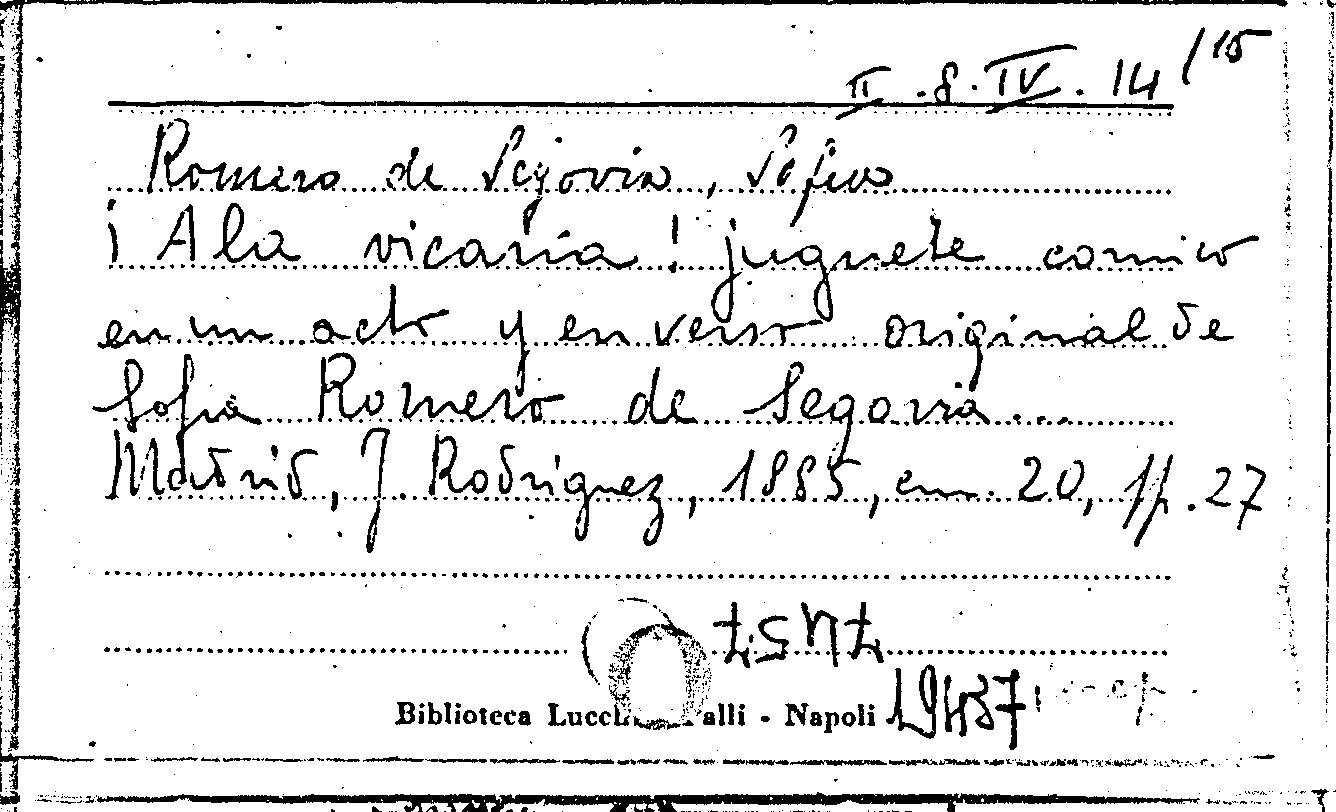 II. 8. IV. 14 / 15
Romero de Segovia, Sofia
¡ A la vicaria ! juguete comico
en un acto y en verso original de
Sofia Romero de Segovia...
Madrid, J. Rodriguez, 1885, cm. 20, pp. 27
Biblioteca Lucch alli - Napoli
19437